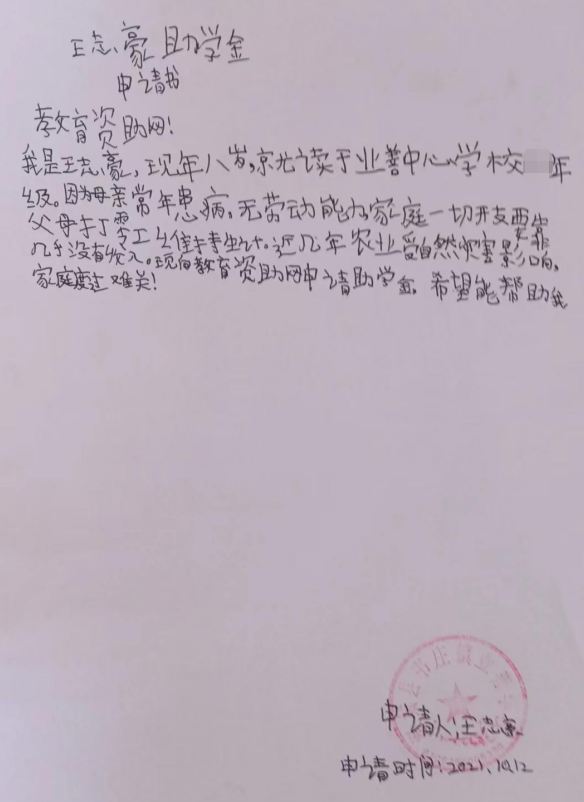 王志豪助学金
申请书
教育资助网!
我是王志豪,现年八岁,就读于业善中心学校 年
级。因为母亲常年患病,无劳动能力,家庭一切开支要靠
父母打零工维持生计。近几年农业受自然灾害影响,
几乎没有收入。现向教育资助网申请助学金,希望能帮助我
家庭度过难关!
申请人:王志豪
申请时间:2021.10.12